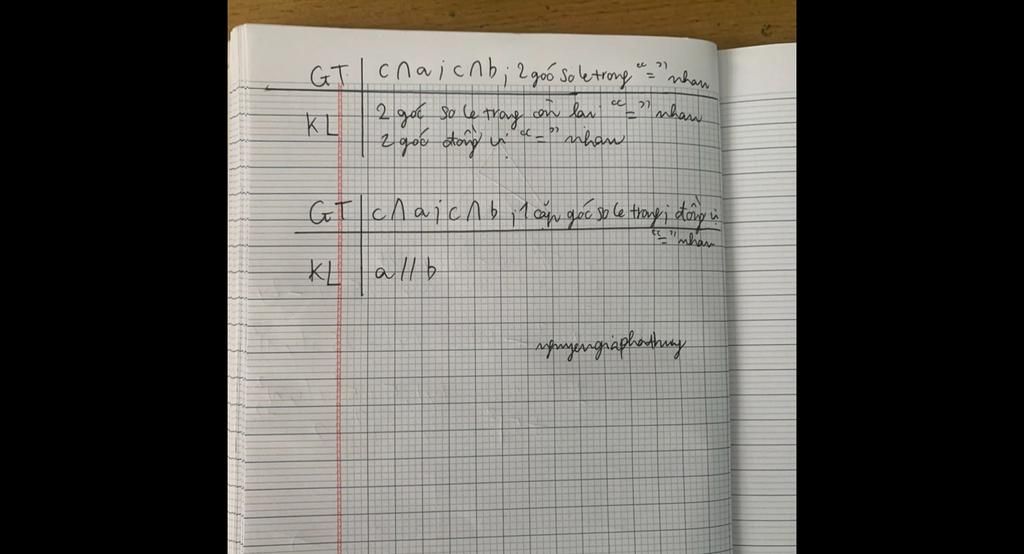 GT c∩a; c∩b; 2 góc so le trong "=" nhau
KL 2 góc so le trong còn lại "=" nhau
2 góc đồng vị "=" nhau
GT c∩a; c∩b; 1 cặp góc so le trong; đồng vị
"=" nhau
KL a // b
nguyengiaphathuy